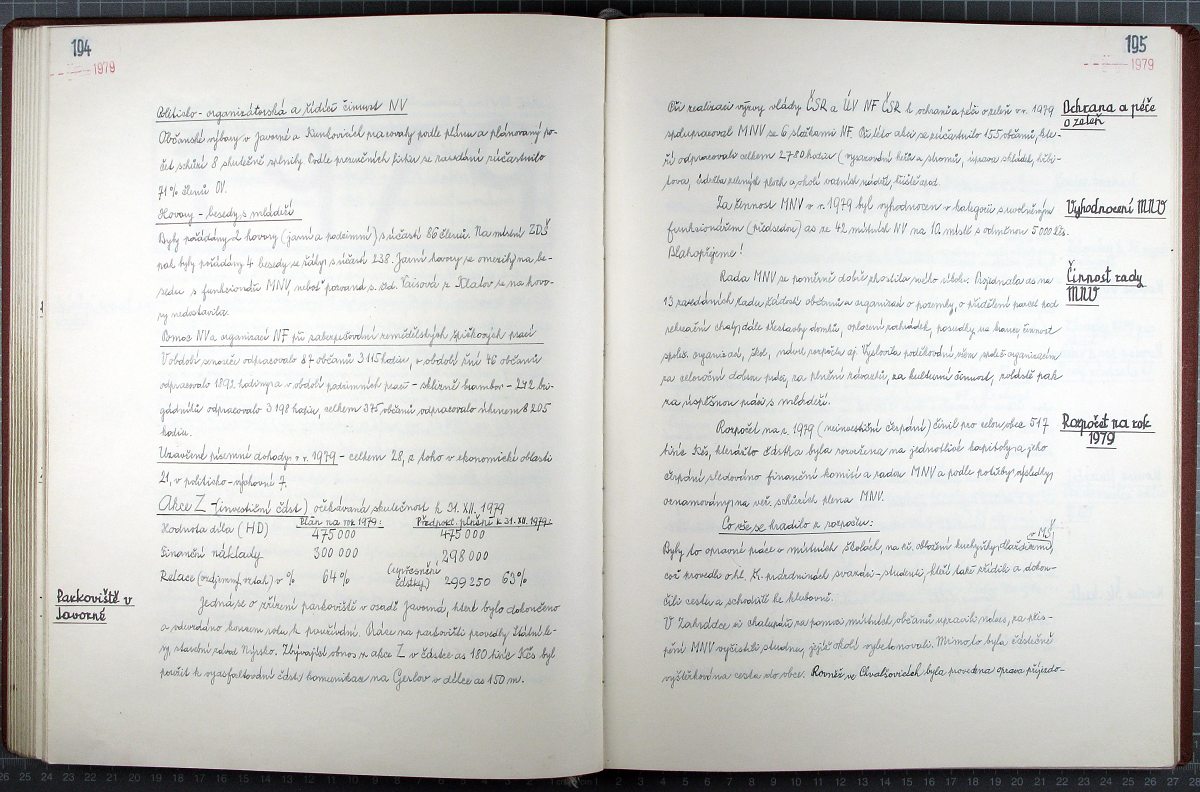 194
1979
Politicko-organizátorská a řídící činnost NV
Občanské výbory v Javorné a Kunkovicích pracovaly podle plánu a plánovaný po-
čet schůzí 8 skutečně splnily. Podle presenčních listin se zasedání zúčastnilo
71% členů OV.
Hovory - besedy s mládeží
Byly pořádány 2 hovory (jarní a podzimní) s účastí 86 členů. Na místní ZDŠ
pak byly pořádány 4 besedy se žáky s účastí 238. Jarní hovory se omezily na be-
sedu s funkcionáři MNV, neboť pozvaná s. z Klatov se na hovo-
ry nedostavila.
Pomoc NV a organizací NF při zabezpečování zemědělských špičkových prací
V období senoseče odpracovalo 87 občanů 3 115 hodin, v období žní 46 občanů
odpracovalo 1892 hodiny a v období podzimních prací - sklizně brambor - 242 bri-
gádníků odpracovalo 3 198 hodin, celkem 375 občanů odpracovalo úhrnem 8 205
hodin.
Uzavřené písemné dohody v r. 1979 - celkem 28, z toho v ekonomické oblasti
21, v politicko-výchovné 7.
Akce Z - (investiční část) očekávaná skutečnost k 31. XII. 1979
Plán na rok 1979: Předpokl. plnění k 31. XII. 1979:
Hodnota díla (HD) 475 000 475 000
Finanční náklady 300 000 298 000
Relace (vzájemný vztah) v % 64% (upřesnění částky) 299 250 63%
Parkoviště v
Javorné
Jedná se o zřízení parkoviště v osadě Javorná, které bylo dokončeno
a odevzdáno koncem roku k používání. Práce na parkovišti provedly Státní le-
sy, stavební závod Nýrsko. Zbývající obnos z akce Z v částce as 180 tisíc Kčs byl
použit k vyasfaltování části komunikace na Gerlov v délce as 150 m.
195
1979
Ochrana a péče
o zeleň
Při realizaci výzvy vlády ČSR a ÚV NF ČSR k ochraně a péči o zeleň v r. 1979
spolupracoval MNV se 6 složkami NF. Při této akci se zúčastnilo 155 občanů, kte-
ří odpracovali celkem 2780 hodin (vysazování keřů a stromů, úprava skládek, hřbi-
tova, údržba zelených ploch a okolí vodních nádrží, hřiště apod.
Vyhodnocení MNV
Za činnost MNV v r. 1979 byl vyhodnocen v kategorii s uvolněným
funkcionářem (předsedou) as ze 42 místních NV na 10. místě s odměnou 5 000 Kčs.
Blahopřejeme!
Činnost rady
MNV
Rada MNV se poměrně dobře zhostila svého úkolu. Projednala as na
13 zasedáních řadu žádostí občanů a organizací o pozemky, o přidělení parcel pod
rekreační chaty, dále přestavby domků, oplocení zahrádek, posudky na starce, činnost
společ. organizací, škol, návrh rozpočtu aj. Vyslovila poděkování všem společ. organizacím
za celoroční dobrou práci, za plnění závazků, za kulturní činnost, zvláště pak
za úspěšnou práci s mládeží.
Rozpočet na rok
1979
Rozpočet na r. 1979 (neinvestiční čerpání) činil pro celou obec 517
tisíc Kčs, kterážto částka byla rozvržena na jednotlivé kapitoly a jeho
čerpání sledováno finanční komisí a radou MNV a podle potřeby výsledky
oznamovány na veř. schůzích plena MNV.
Co vše se hradilo z rozpočtu:
Byly to opravné práce v místních školách, na př. obložení kuchyňky v MŠ dlaždicemi,
což provedli o hl. šk. prázdninách svazáci - studenti, kteří také zřídili a dokon-
čili cestu a schodiště ke klubovně.
V Zahrádce si chalupáři za pomoci místních občanů upravili náves, za přis-
pění MNV vyčistili studnu, její okolí vybetonovali. Mimo to byla částečně
vyštěrkována cesta do obce. Rovněž ve Chvalšovicích byla provedena oprava příjezdo-